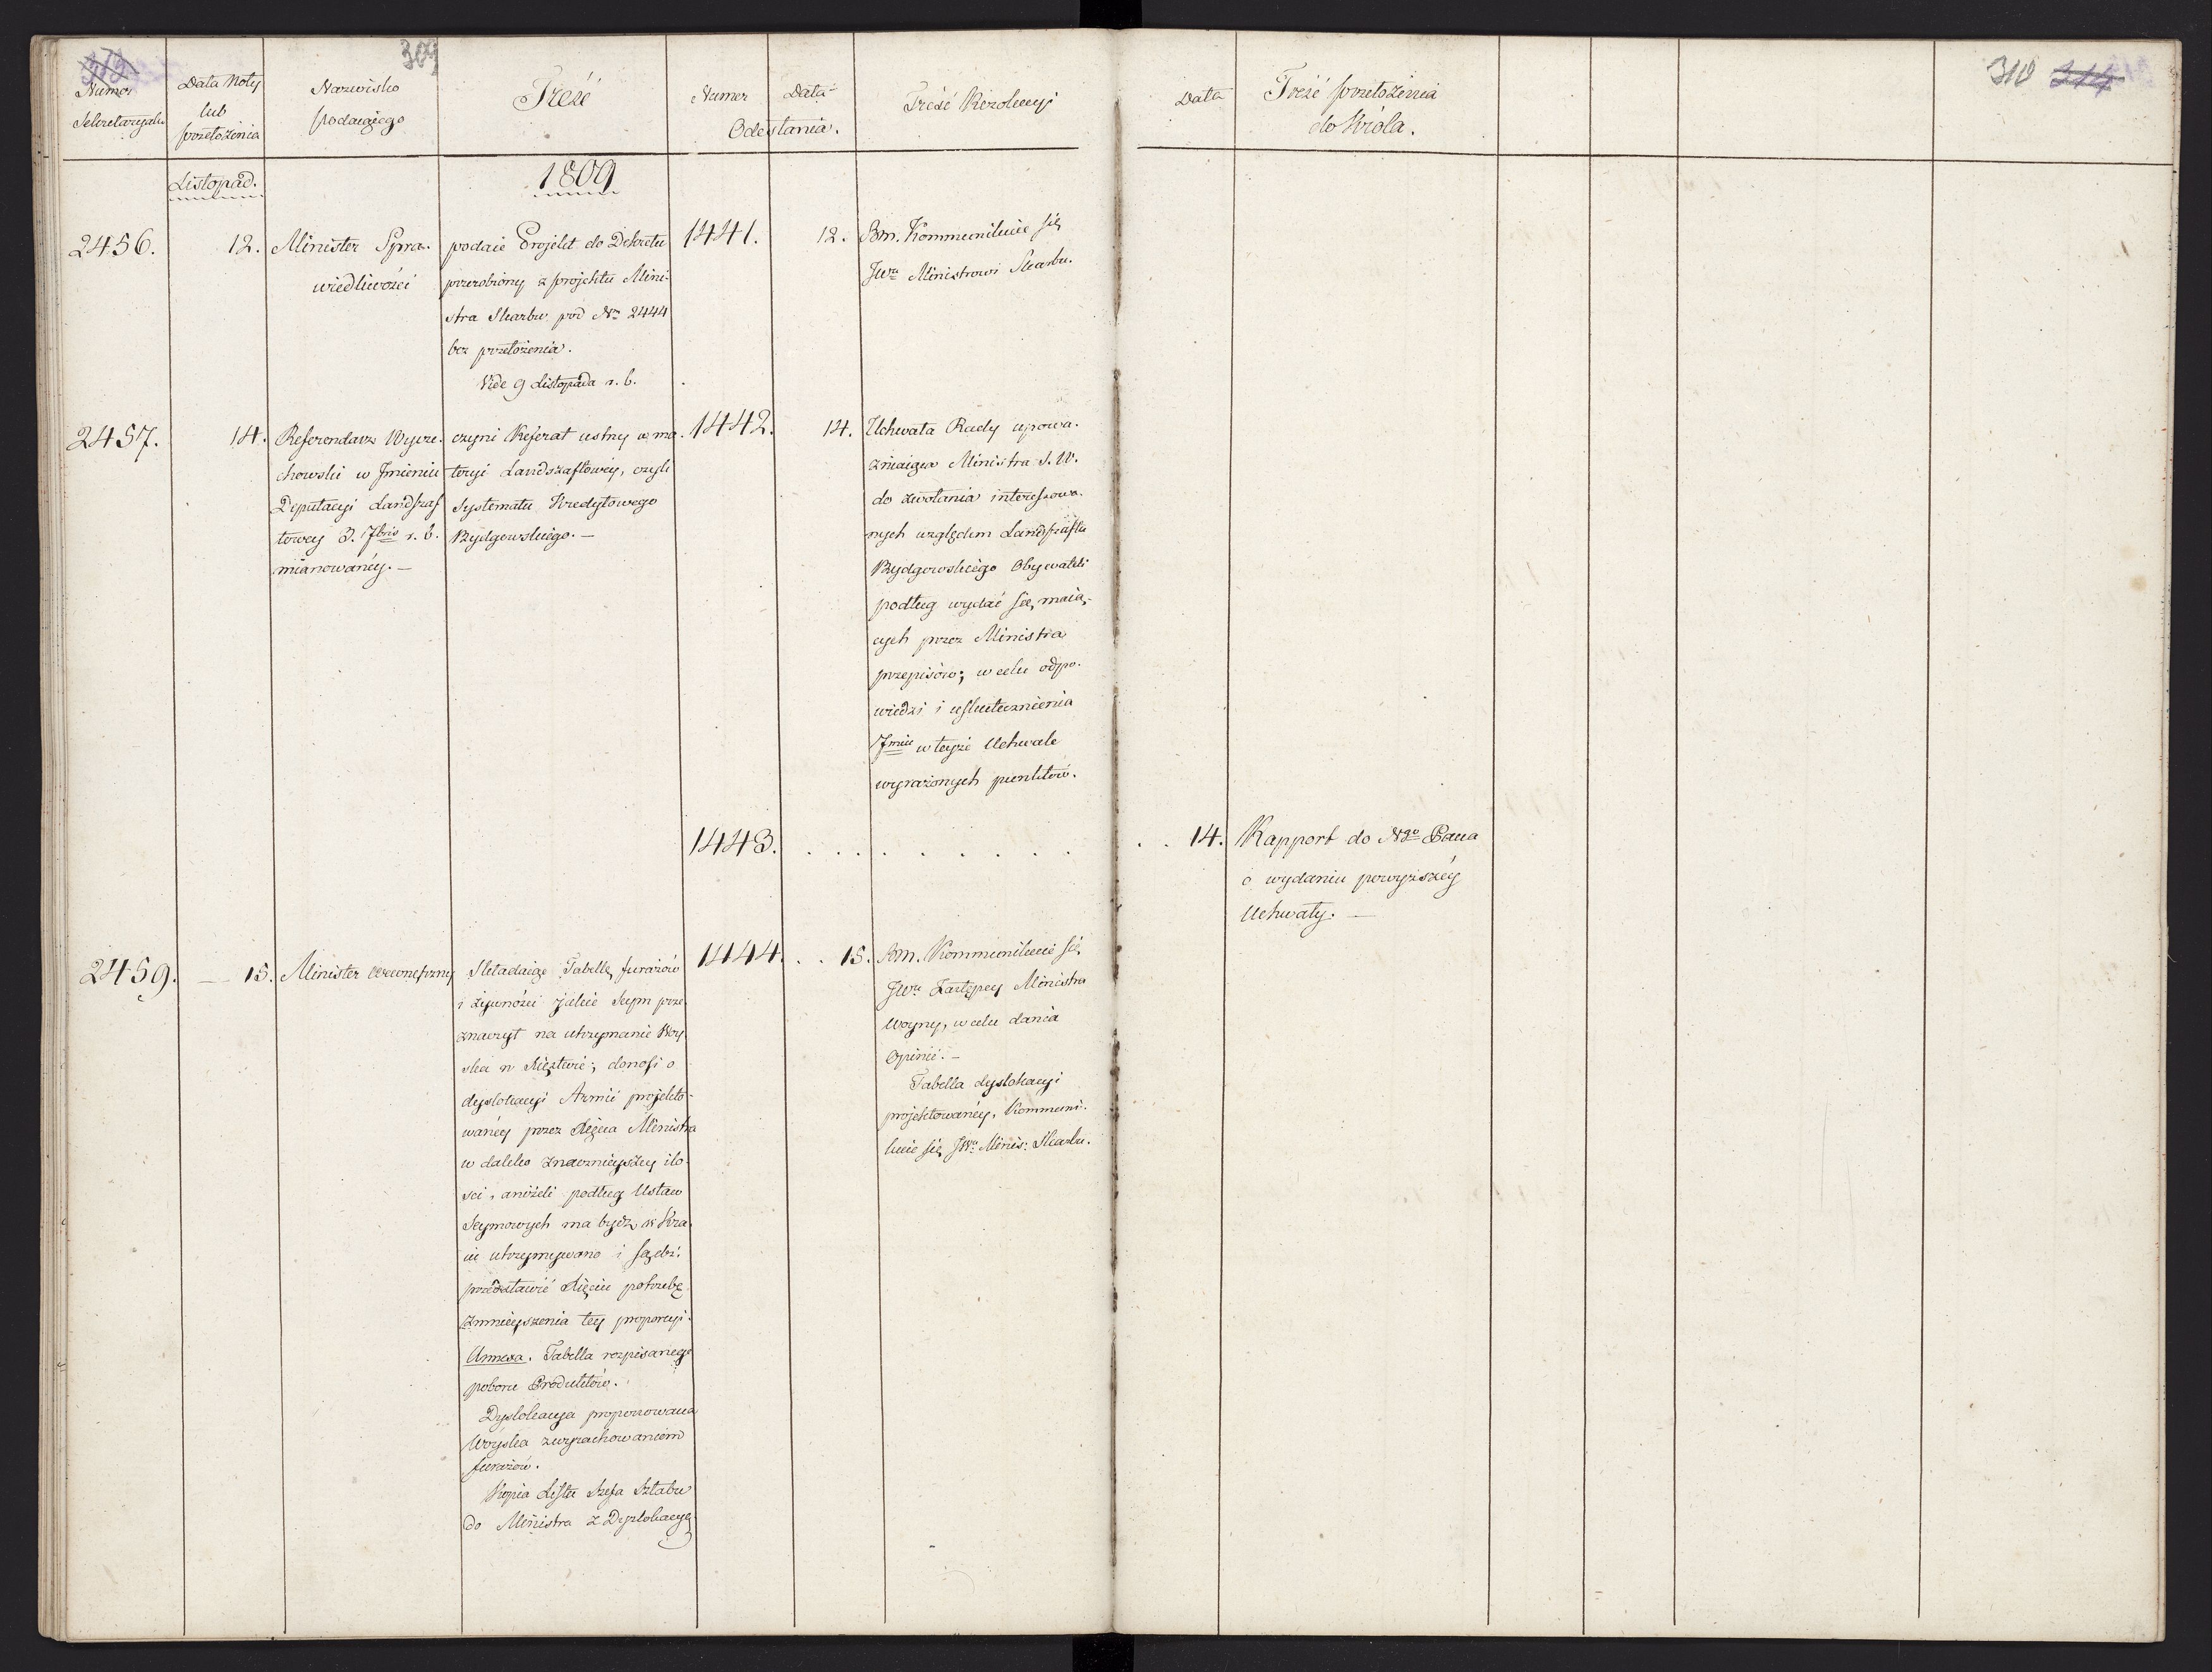 309
310 314
Numer
Sekretaryatu
Data Noty
lub
przełożenia
Nazwisko
podaiącego
Treść
Numer Data
Odesłania.
Treść Rezolucyi
Data
Treść przełożenia
do Króla.
Listopad.
1809
2456.
12.
Minister Spra-
wiedliwości
podaie Projekt do Dekretu
przerobiony z projektu Mini-
stra Skarbu pod Nro 2444
bez przełożenia.
Vide 9 Listopada r. b.
1441.
12.
Bm. Kommunikuie się
JWu Ministrowi Skarbu.
2457.
14.
Referendarz Wycze-
chowski w Jmieniu
Deputacyi Landszaf
towey 3. 7bris r. b.
mianowanéy. —
czyni Referat ustny w ma-
teryi Landszaftowéy, czyli
Systematu Kredytowego
Bydgowskiego. —
1442.
14.
Uchwała Rady upowa-
żniaiąca Ministra S. W.
do zwołania interessowa-
nych względem Landszaftu
Bydgowskiego Obywateli
podług wydać się maią-
cych przez Ministra
przepisów; w celu odpo-
wiedzi i uskutecznienia
w teyże Uchwale
wyrażonych punktów.
1443. . . . . . . . . .
. . 14.
Rapport do Ngo Pana
o wydaniu powyższéy
Uchwały. —
2459.
— 15.
Minister Wewnętrzny
Składaiąc Tabellę furażów
i żywności jakie Seym prze-
znaczył na utrzymanie Woy-
ska w Xięztwie; donosi o
dyslokacyi Armii projekto-
wanéy przez Xięcia Ministra
w daleko znacznieyszéy ilo-
ści, aniżeli podług Ustaw
Seymowych ma bydź w Kra-
iu utrzymywano i sądzi
przedstawić Xięciu potrzebę
zmnieyszenia tey proporcyi.
Annexa. Tabella rozpisanego
poboru Produktów.
Dyslokacya proponowana
Woyska z wyrachowaniem
furażów.
Kopia Listu Szefa Sztabu
do Ministra z Dyslokacyą
1444. . .
15.
Bm. Kommunikuie się
JWu Zastępcy Ministra
Woyny, w celu dania
Opinii. —
Tabella dyslokacyi
projektowanéy, Kommuni-
kuie się JWu Minis: Skarbu.